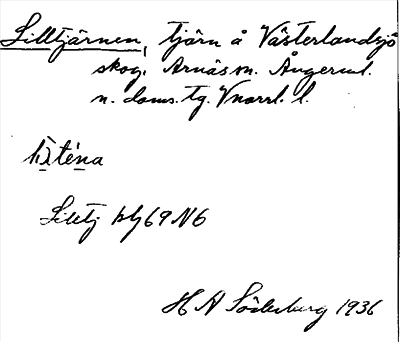 Lilltjärnen, tjärn å Västerlandsjö
skog, Arnäs sn. Ångerml.
n. doms. tg. Vnorrl. l.
Lilltj bl 69 N6
H A Söderberg 1936